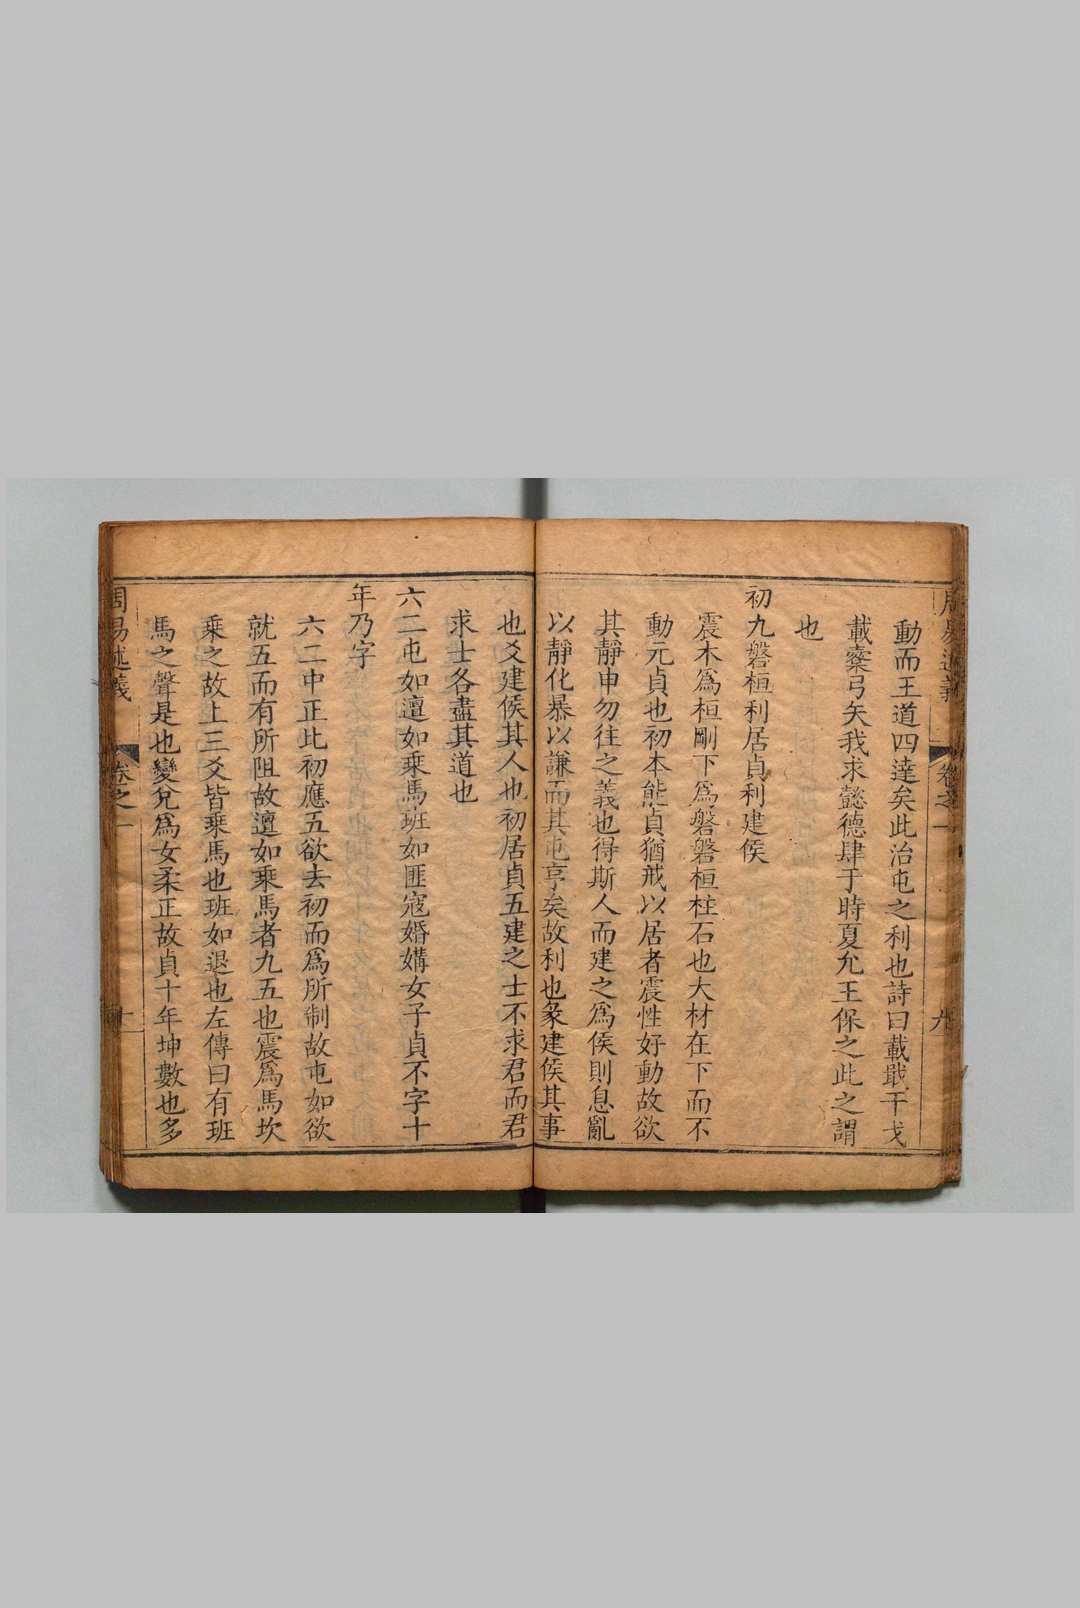 周易述義
卷之一
九
動而王道四達矣此治屯之利也詩曰載戢干戈
載櫜弓矢我求懿德肆于時夏允王保之此之謂
也
初九磐桓利居貞利建侯
震木為桓剛下為磐磐桓柱石也大材在下而不
動元貞也初本能貞猶戒以居者震性好動故欲
其靜申勿往之義也得斯人而建之為侯則息亂
以靜化暴以謙而其屯亨矣故利也彖建侯其事
也爻建侯其人也初居貞五建之士不求君而君
求士各盡其道也
六二屯如邅如乘馬班如匪寇婚媾女子貞不字十
年乃字
六二中正此初應五欲去初而為所制故屯如欲
就五而有所阻故邅如乘馬者九五也震為馬坎
乘之故上三爻皆乘馬也班如退也左傳曰有班
馬之聲是也變兌為女柔正故貞十年坤數也多
周易述義
卷之一